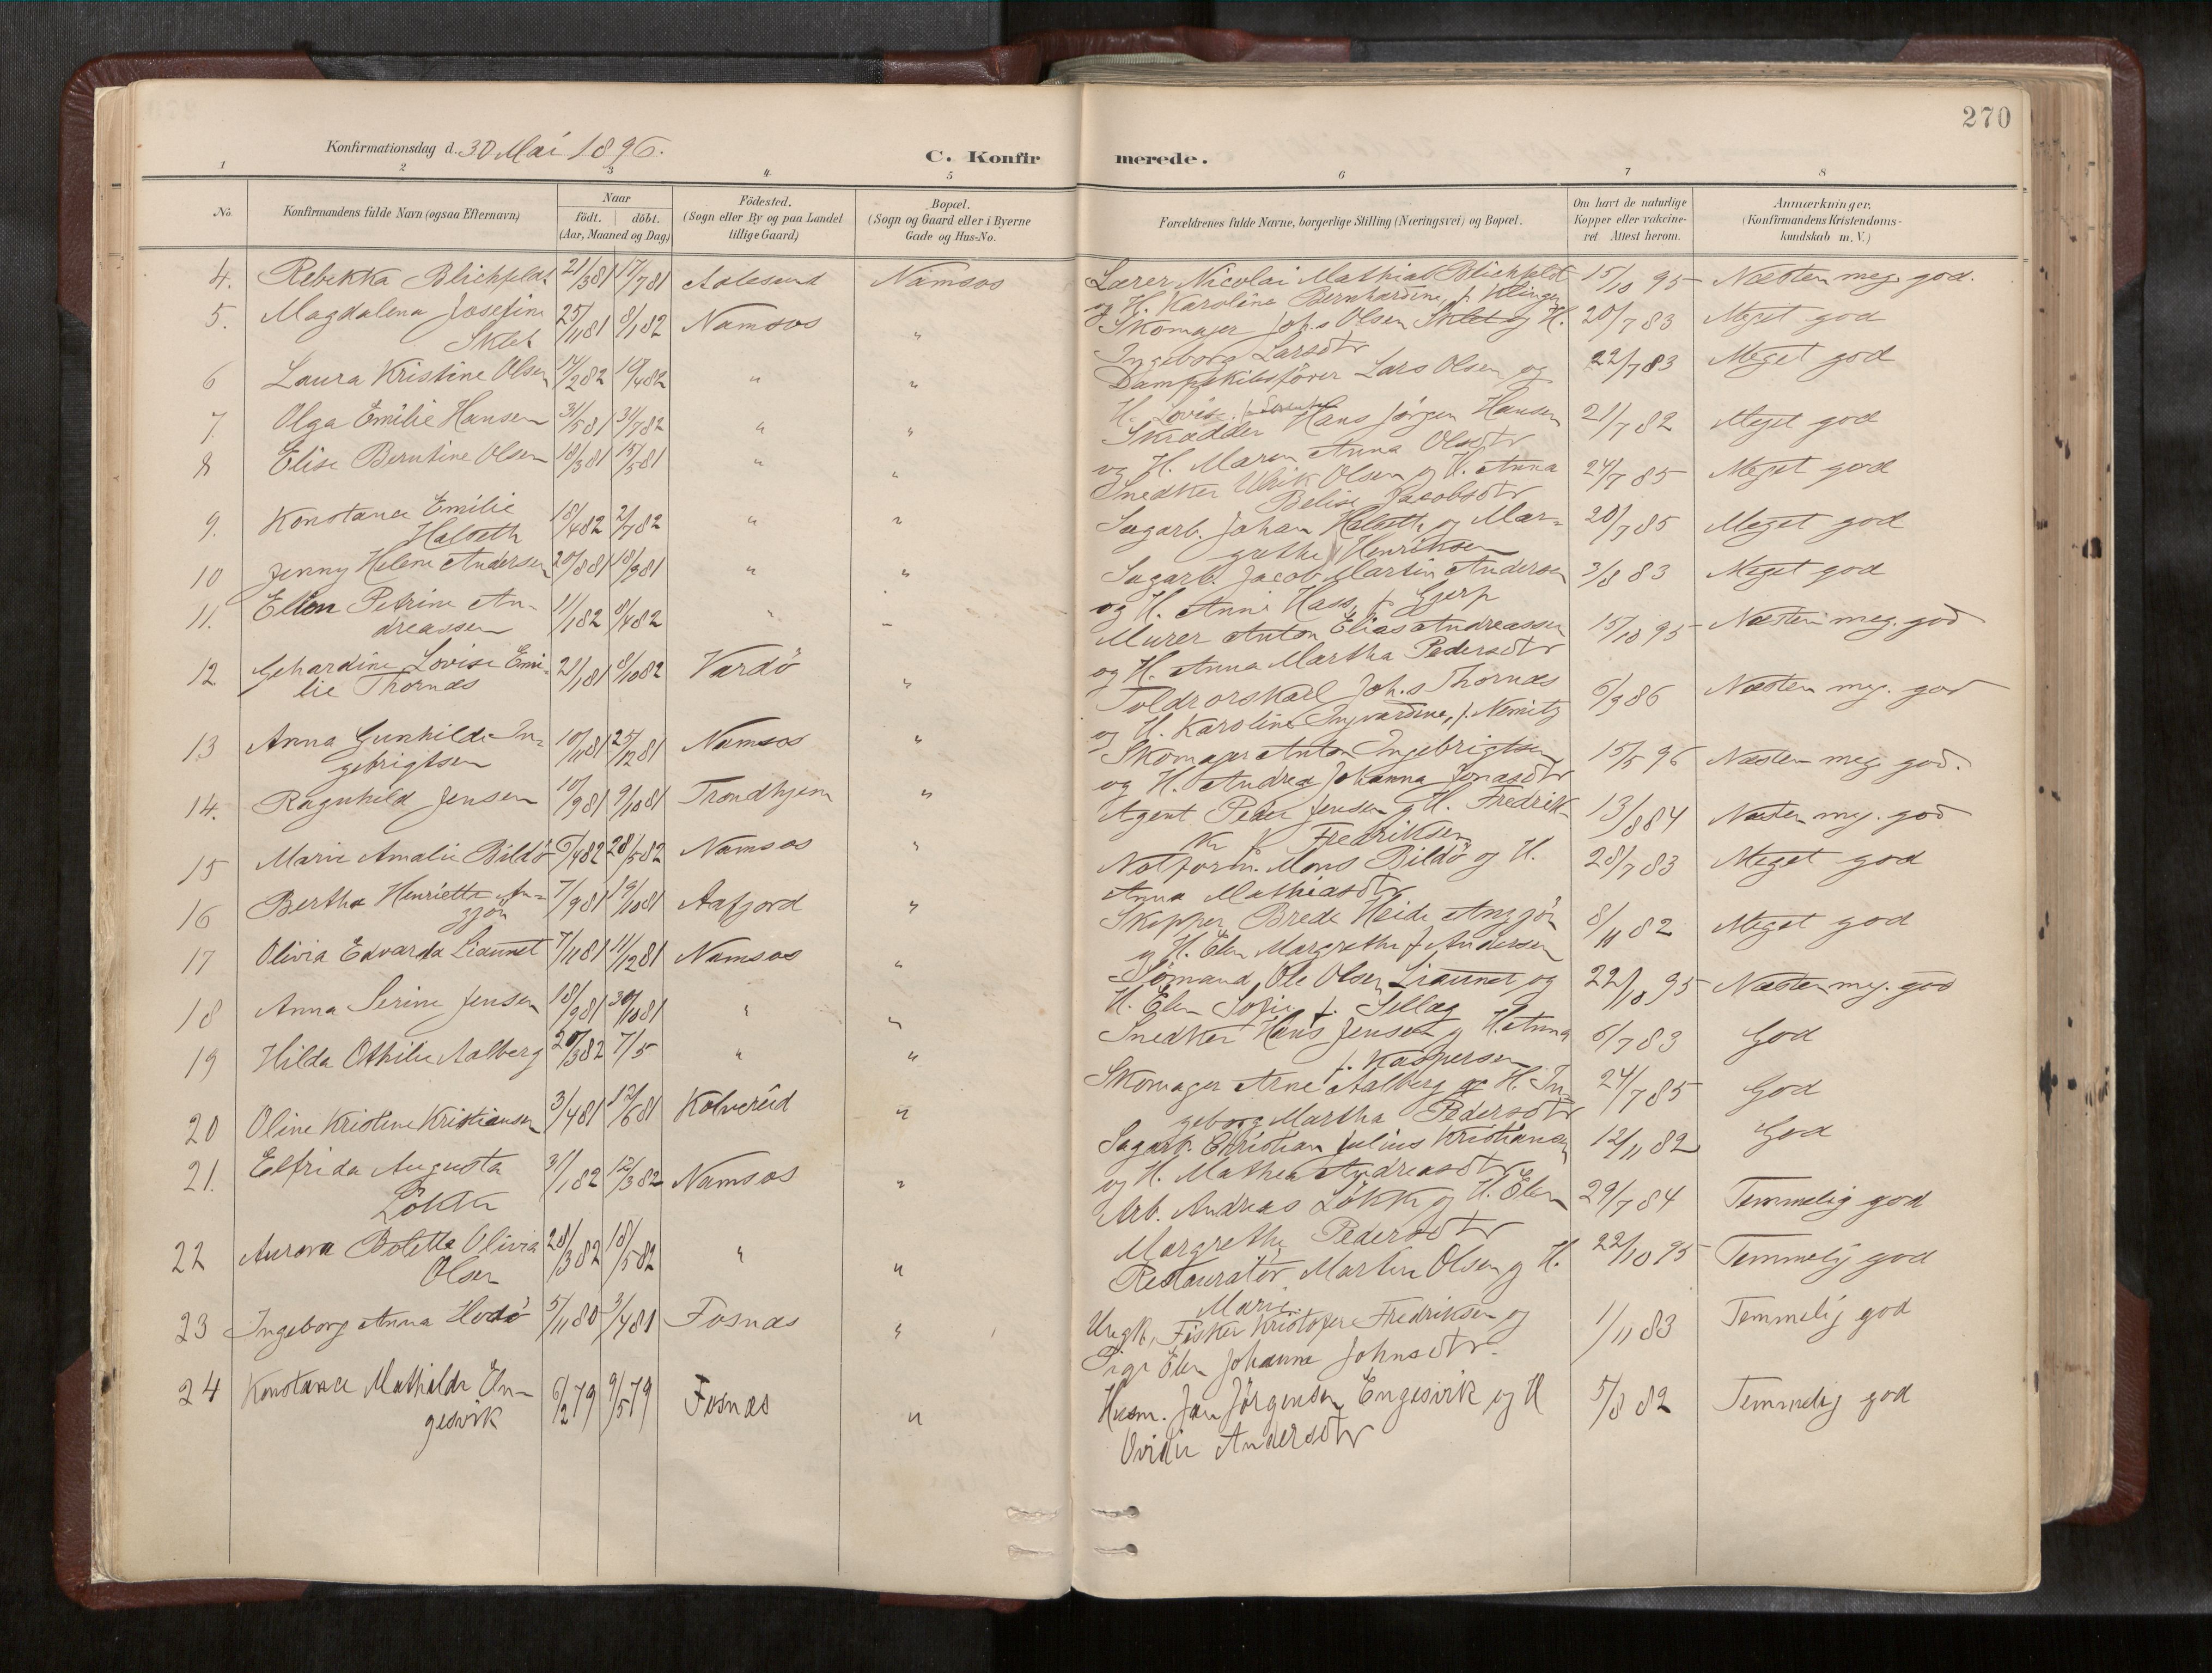 270
Konfirmationsdag d. 30 Mai 1896.
C. Konfirmerede.
1 2 3 4 5 6 7 8
No. Konfirmandens fulde Navn (ogsaa Efternavn) Naar født. døbt. (Aar, Maaned og Dag) Fødested. (Sogn eller By og paa Landet tillige Gaard) Bopæl. (Sogn og Gaard eller i Byerne Gade og Hus-No. Forældrenes fulde Navne, borgerlige Stilling (Næringsvei) og Bopæl. Om havt de naturlige Kopper eller vakcineret. Attest herom. Anmærkninger. (Konfirmandens Kristendomskundskab m. V.)
4. Rebekka Blichfeldt 21/3 81 17/7 81 Aalesund Namsos Lærer Nicolai Mathias Blichfeldt 15/10 95 Næsten meg. god.
og H. Karoline Bernhardine, f. Klingen
5. Magdalena Josefine 25/11 81 8/1 82 Namsos " Skomager Joh.s Olsen Sklet og H. 20/7 83 Meget god
Sklet Ingeborg Larsdtr
6 Laura Kristine Olsen 14/2 82 10/4 82 " " Dampskibsfører Lars Olsen og 22/7 83 Meget god
H. Lovise
7. Olga Emilie Hansen 31/5 81 31/7 82 " " Skrædder Hans Jørgen Hansen 21/7 82 Meget god
og H. Maren Anna Olsdtr
8 Elise Berntine Olsen 18/3 81 15/5 81 " " Snedker Ulrik Olsen og H. Anna 24/7 85 Meget god
Belise Jacobsdtr
9. Konstanse Emilie 18/4 82 2/7 82 " " Sagarb. Johan Halseth og Mar- 20/7 85 Meget god
Halseth grethe Henriksen
10 Jenny Helene Andersen 20/8 81 18/9 81 " " Sagarb. Jacob Martin Andersen 3/8 83 Meget god
og H. Anne Hass, f. Gjerp
11. Ellen Petrine An- 11/1 82 8/4 82 " " Murer Anton Elias Andreassen 15/10 95 Næsten meg. god
dreassen og H. Anna Martha Pedersdtr
12 Gehardine Lovise Emi- 21/1 81 8/10 82 Vardö " Toldrorskarl Joh.s Thornæs 6/9 86 Næsten meg. god
lie Thornæs og H. Karoline Ingvardine, f. Nemitz
13 Anna Gunhilde In- 10/11 81 25/12 81 Namsos " Skomager Anton Ingebrigtsen 15/5 96 Næsten meg. god.
gebrigtsen og H. Andrea Johanna Jonasdtr
14. Ragnhild Jensen 10/9 81 9/10 81 Trondhjem " Agent Peder Jensen og H. Fredrik- 13/8 84 Næsten meg. god
ke f. Fredriksen
15 Marie Amalie Bildö 6/4 82 28/5 82 Namsos " Notform. Mons Bildö og H. 28/7 83 Meget god
Anna Mathiasdtr
16 Bertha Henriette An- 7/9 81 19/10 81 Aafjord " Skipper Brede Heide Anzjön 8/11 82 Meget god
zjön og H. Elen Margrethe f. Andersen
17 Olivia Edvarda Liaunet 7/11 81 11/12 81 Namsos " Sömand Ole Olsen Liaunet og 22/10 95 Næsten meg. god
H. Elen Sofie f. Sellæg
18 Anna Serine Jensen 18/9 81 30/10 81 " " Snedker Hans Jensen og H. Anna 6/7 83 God
f. Kaspersen
19 Hilda Othilie Aalberg 20/3 82 7/5 " " Skomager Arne Aalberg og H. In- 24/7 85 God
geborg Martha Pedersdtr
20 Oline Kristine Kristiansen 3/4 81 12/6 81 Kolvereid " Sagarb. Christian Julius Kristiansen 12/11 82 God
og H. Mathea Andreasdtr
21. Elfrida Augusta 31/1 82 12/3 82 Namsos " Arb. Andreas Lökke og H. Elen 29/7 84 Temmelig god
Lökke Margrethe Pedersdtr
22 Aurora Boletta Olivia 28/3 82 18/5 82 " " Restauratör Martin Olsen og H. 22/10 95 Temmelig god
Olsen Marie
23 Ingeborg Anna Hodö 5/11 80 3/4 81 Fosnæs " Uægte, Fisker Kristofer Fredriksen og 1/11 83 Temmelig god
Pige Elen Johanna Johnsdtr.
24 Konstanse Mathilde En- 6/2 79 9/5 79 Fosnæs " Husm. Jon Jörgensen Engesvik og H 5/8 82 Temmelig god
gesvik Ovidie Andersdtr